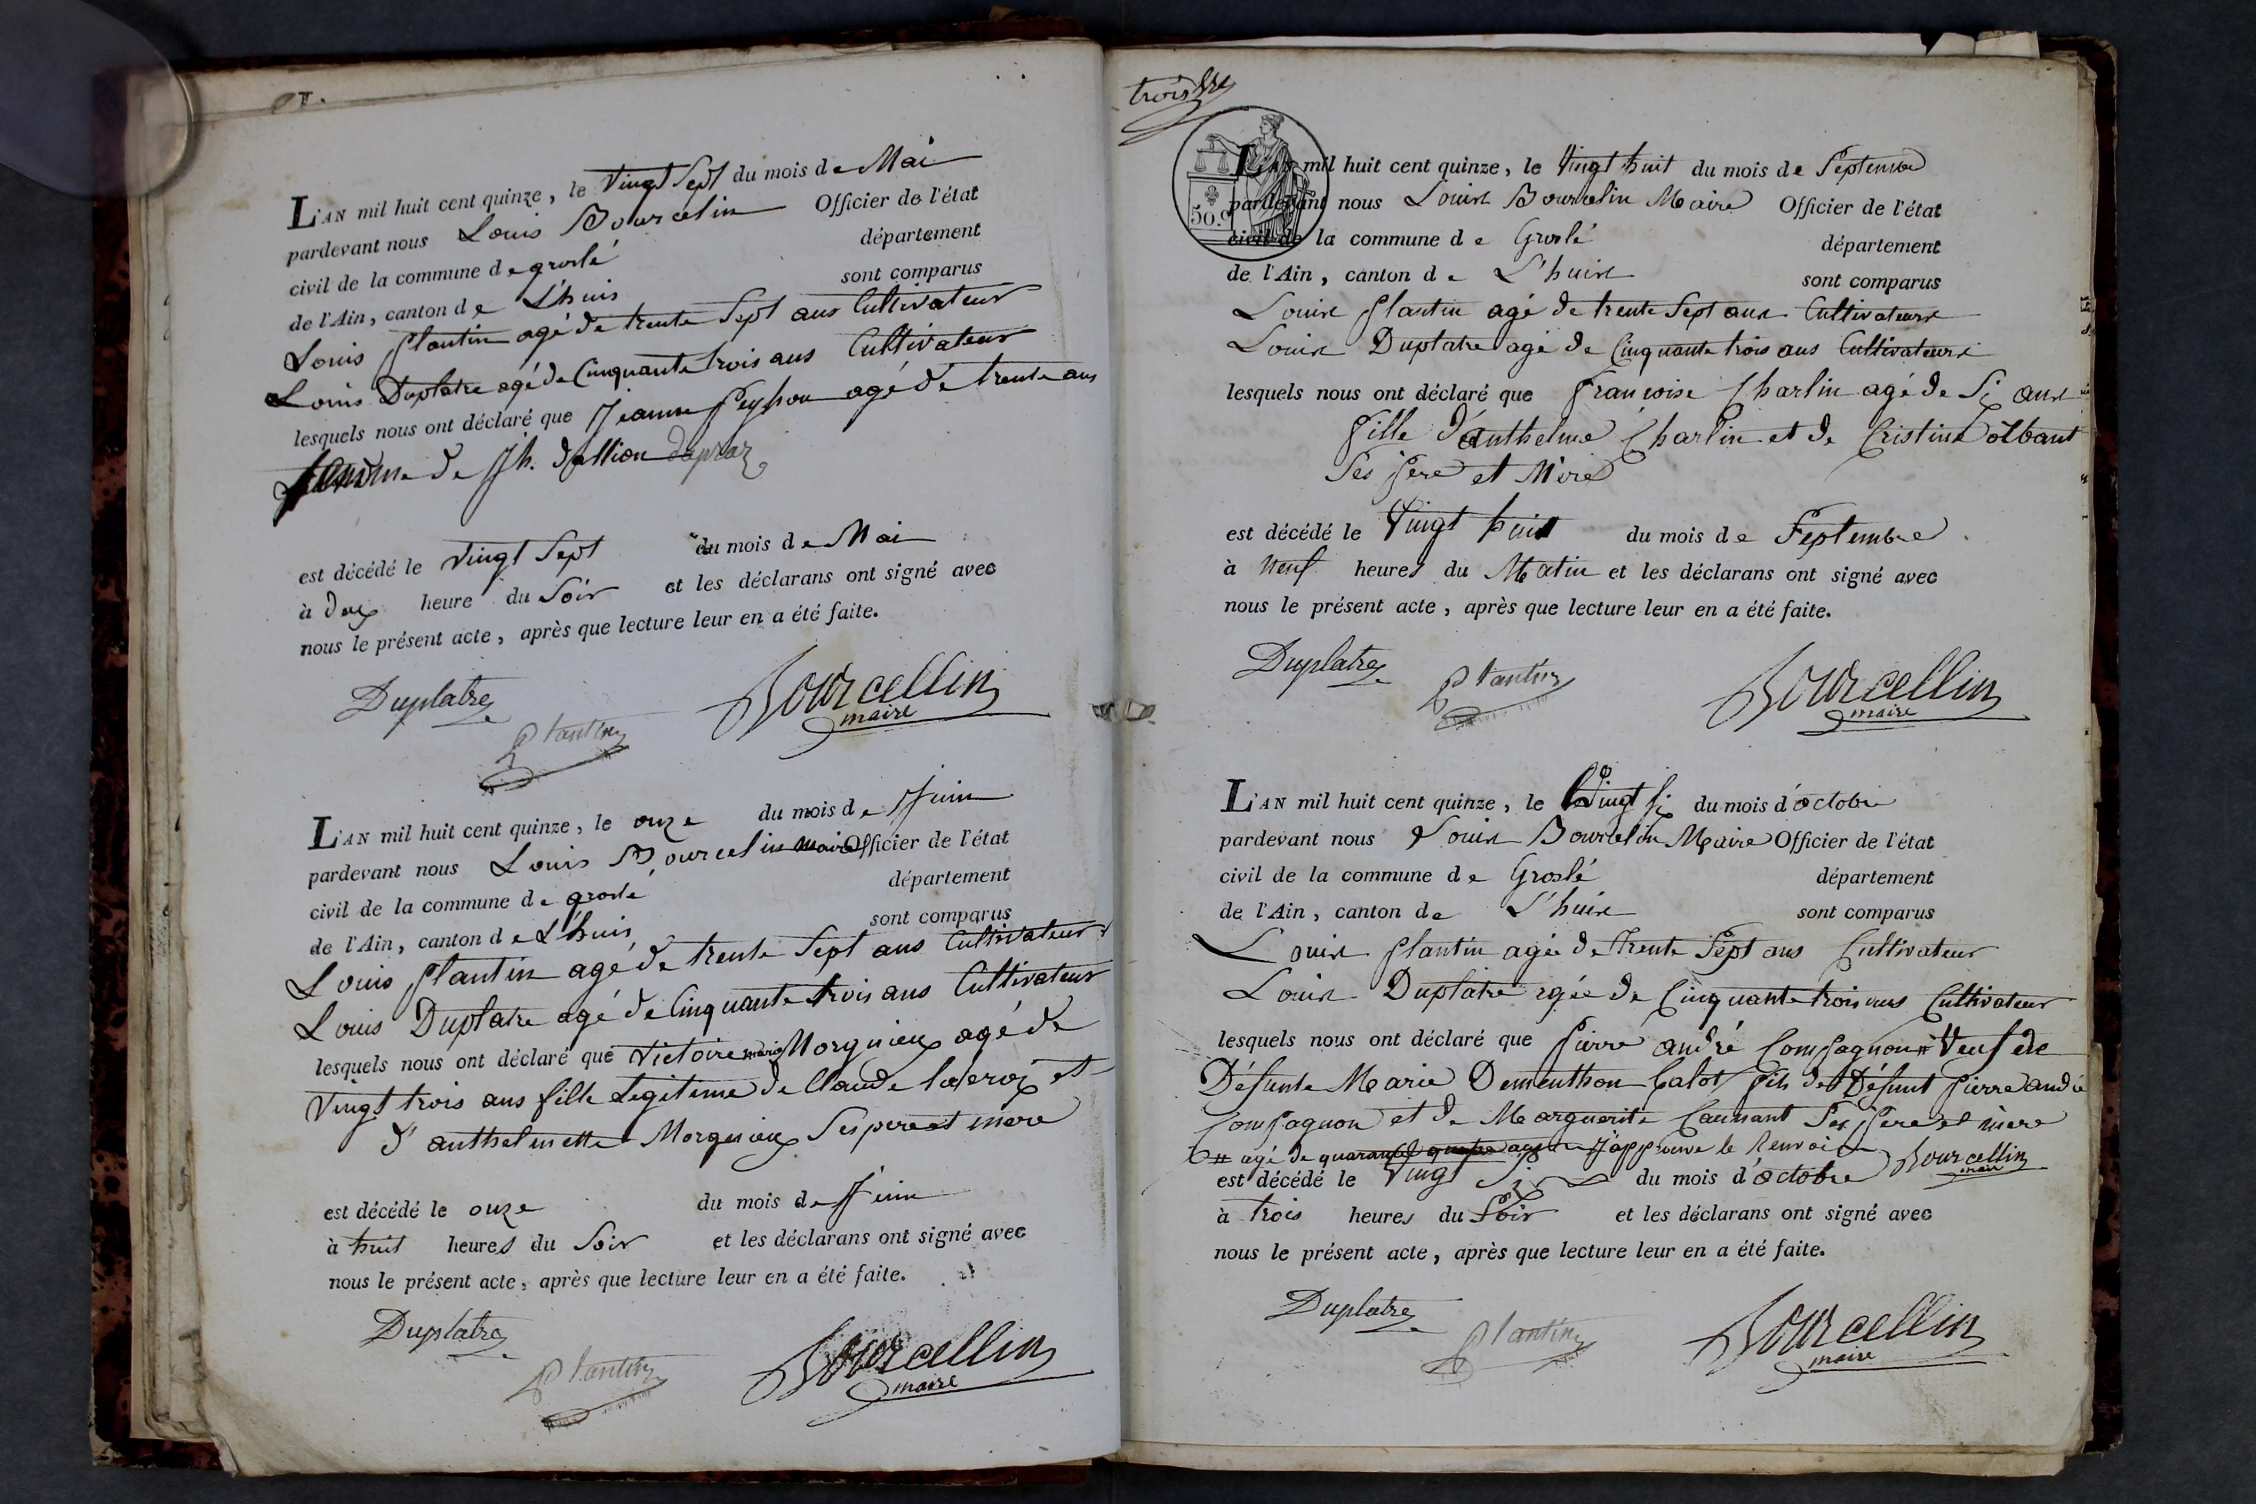 L'AN mil huit cent quinze, le vingt Sept du mois de Mai
pardevant nous Louis Bourcelin Officier de l'état
civil de la commune de groslé département
de l'Ain, canton de L'huis sont comparus
Louis plantin agé de trente Sept ans Cultivateur
Louis Duplatre agé de Cinquante trois ans Cultivateur
lesquels nous ont déclaré que Jeanne peyson agé de trente ans
femme de Jh. dallion
est décédé le vingt Sept du mois de Mai
à dux heure du Soir et les déclarans ont signé avec
nous le présent acte, après que lecture leur en a été faite.
Duplatre Bourcellin
Plantin maire
L'AN mil huit cent quinze, le onze du mois de Juin
pardevant nous Louis Bourcelin maire Officier de l'état
civil de la commune de groslé département
de l'Ain, canton de L'huis sont comparus
Louis plantin agé de trente Sept ans Cultivateur
Louis Duplatre agé de Cinquante trois ans Cultivateur
lesquels nous ont déclaré que victoire marie Morgnieux agé de
vingt trois ans fille Legitime de Claude et
d'anthelmette Morgnieux Ses pere et mere
est décédé le onze du mois de Juin
à huit heures du Soir et les déclarans ont signé avec
nous le présent acte, après que lecture leur en a été faite.
Duplatre Bourcellin
Plantin maire
trois
50. C
L'AN mil huit cent quinze, le vingt huit du mois de Septembre
pardevant nous Louis Bourcelin Maire Officier de l'état
civil de la commune de Groslé département
de l'Ain, canton de L'huis sont comparus
Louis plantin agé de trente Sept ans Cultivateurs
Louis Duplatre agé de Cinquante trois ans Cultivateurs
lesquels nous ont déclaré que françoise Charlin agé de Si ans
fille d'anthelme Charlin et de Cristine olbant
Ses pere et Mere
est décédé le vingt huit du mois de Septembre
à neuf heures du Matin et les déclarans ont signé avec
nous le présent acte, après que lecture leur en a été faite.
Duplatre Plantin Bourcellin
maire
L'AN mil huit cent quinze, le vingt si du mois d'octobre
pardevant nous Louis Bourcelin Maire Officier de l'état
civil de la commune de Groslé département
de l'Ain, canton de L'huis sont comparus
Louis plantin agée de trente Sept ans Cultivateur
Louis Duplatre agée de Cinquante trois ans Cultivateur
lesquels nous ont déclaré que pierre andré Compagnon # veuf de
Défunte Marie Dementhon Calot fils de Défunt pierre andré
Compagnon et de Marguerite Caunant Ses pere et mère
# agé de quarante quatre ans J'approuve le Renvoi Bourcellin
maire
est décédé le vingt Si du mois d'octobre
à trois heures du Soir et les déclarans ont signé avec
nous le présent acte, après que lecture leur en a été faite.
Duplatre Plantin Bourcellin
maire